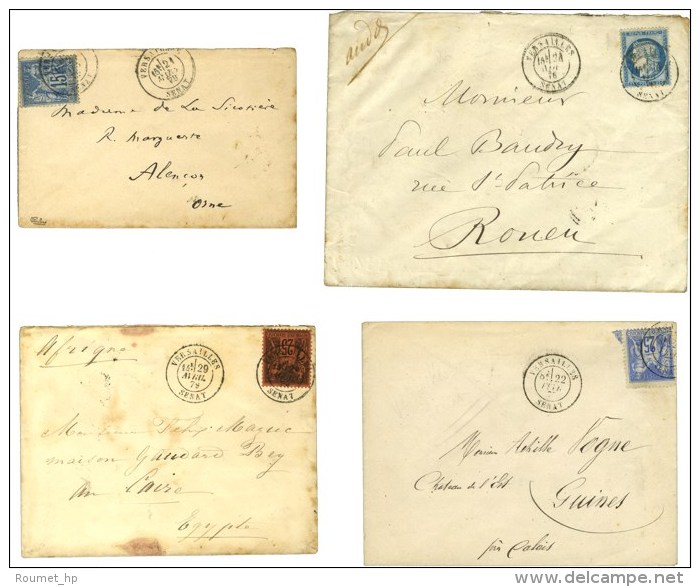 15
VERSAILLES
21
79
SENAT
Madame de La Sicotière
R. Marguerite
Alençon
Orne
VERSAILLES
SENAT
SENAT
Monsieur
Paul Baudry
rue St Patrice
Rouen
Afrique
25
VERSAILLES
29
AVRIL
79
SENAT
SENAT
Monsieur
maison Gaudard Bey
au Caire
Egypte
25
VERSAILLES
22
SENAT
Monsieur Achille Vogne
Chateau de l'Est
Guines
pin Calais
© Roumet_hp
delcampe.net